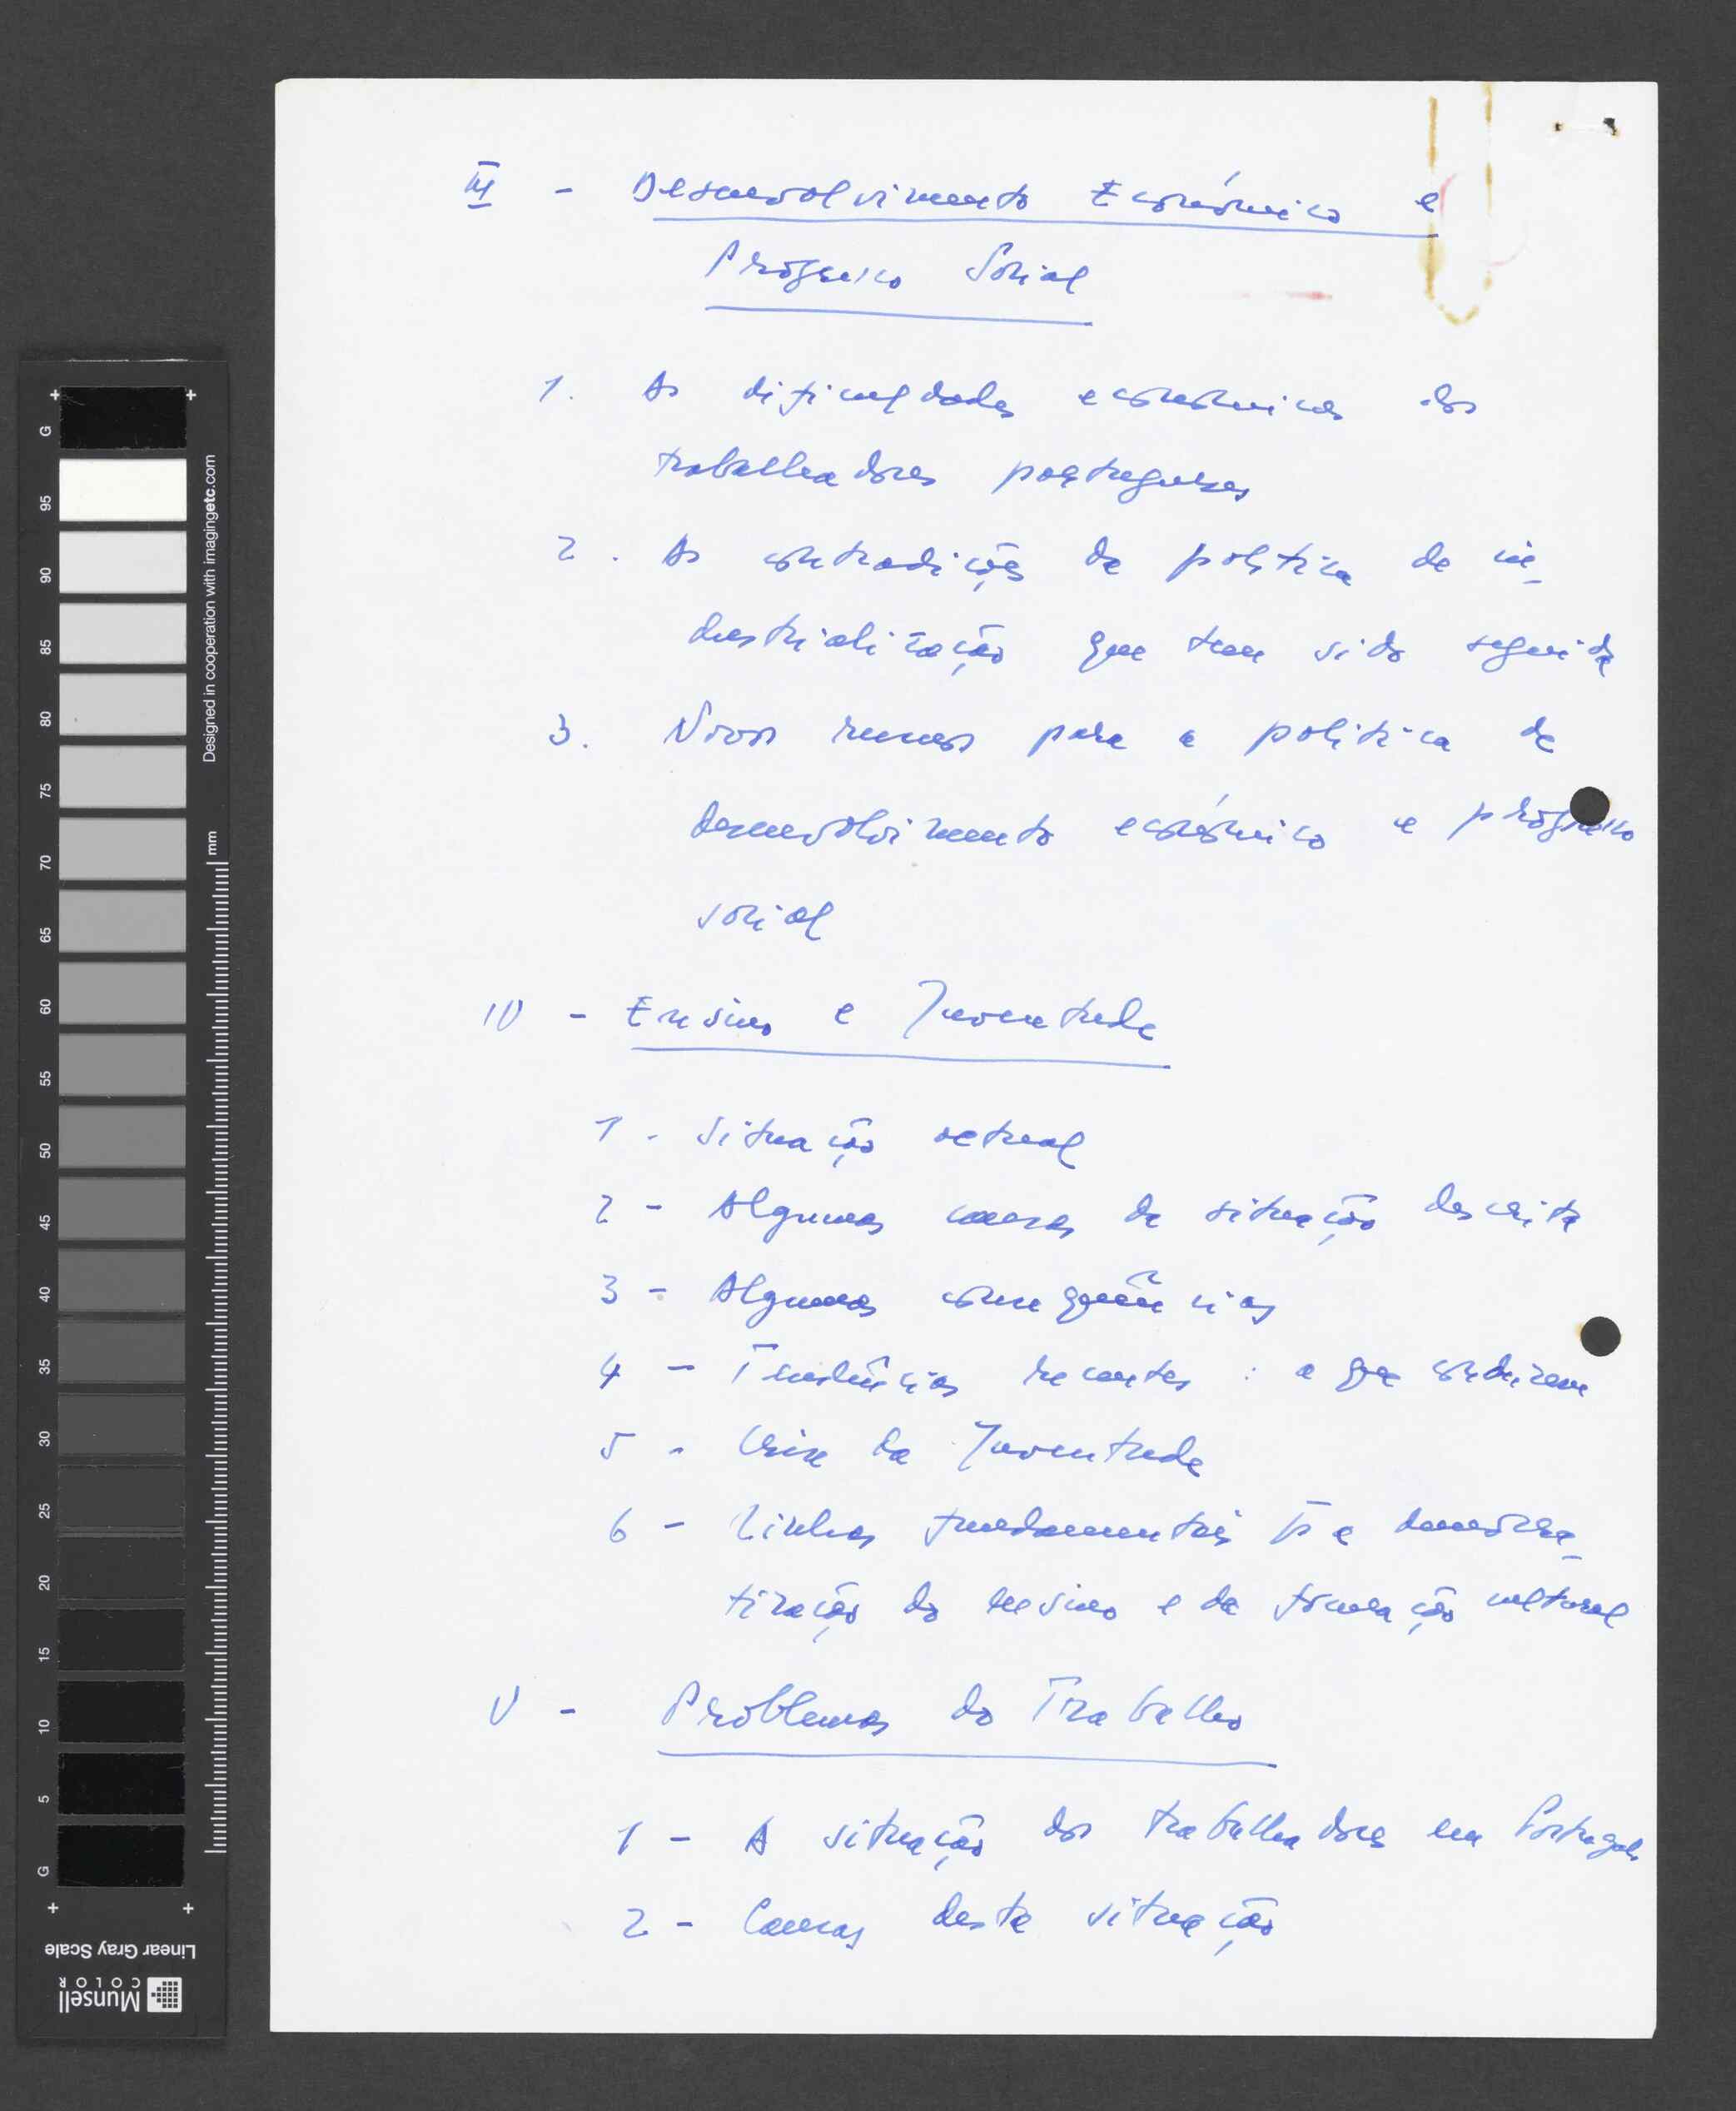 III - Desenvolvimento Económico e
Progresso Social
1. As dificuldades económicas dos
trabalhadores portugueses
2. As contradições da política de in-
dustrialização que tem sido seguida
3. Novos rumos para a política de
desenvolvimento económico e progresso
social
IV - Ensino e Juventude
1 - Situação actual
2 - Algumas causas da situação descrita
3 - Algumas consequências
4 - Tendências recentes : a que conduzem
5 - Crise da Juventude
6 - Linhas fundamentais pª a democra-
tização do ensino e da formação cultural
V - Problemas do Trabalho
1 - A situação dos trabalhadores em Portugal
2 - Causas desta situação
G
95
90
85
80
75
70
65
60
55
50
45
40
35
30
25
20
15
10
5
G
Designed in cooperation with imagingetc.com
mm
Linear Gray Scale
Munsell
COLOR